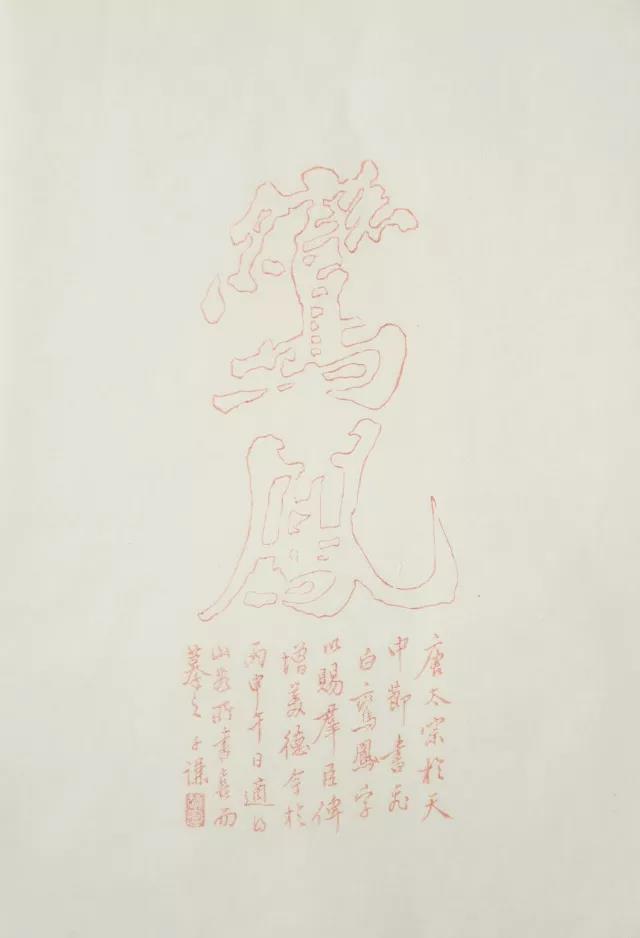 鸞
鳳
唐太宗於天
中節書飛
白鸞鳳字
以賜羣臣俾
增美德今於
丙申午日適
山所書喜而
摹之子謙